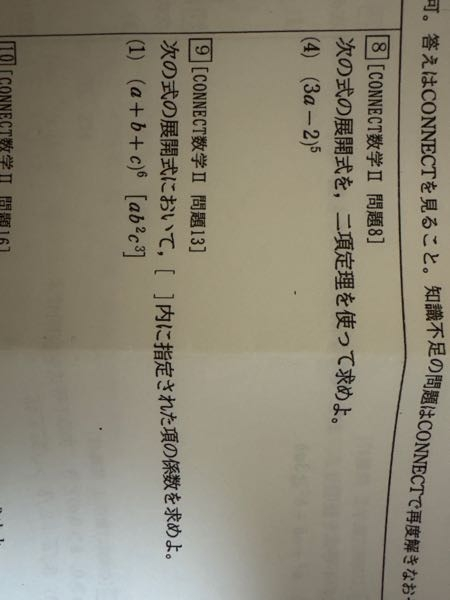 可。答えはCONNECTを見ること。知識不足の問題はCONNECTで再度解きなお
8 [CONNECT数学Ⅱ 問題8]
次の式の展開式を，二項定理を使って求めよ。
(4) (3a－2)⁵
9 [CONNECT数学Ⅱ 問題13]
次の式の展開式において，[ ]内に指定された項の係数を求めよ。
(1) (a＋b＋c)⁶ [ab²c³]
10 [CONNECT数学Ⅱ 問題16]